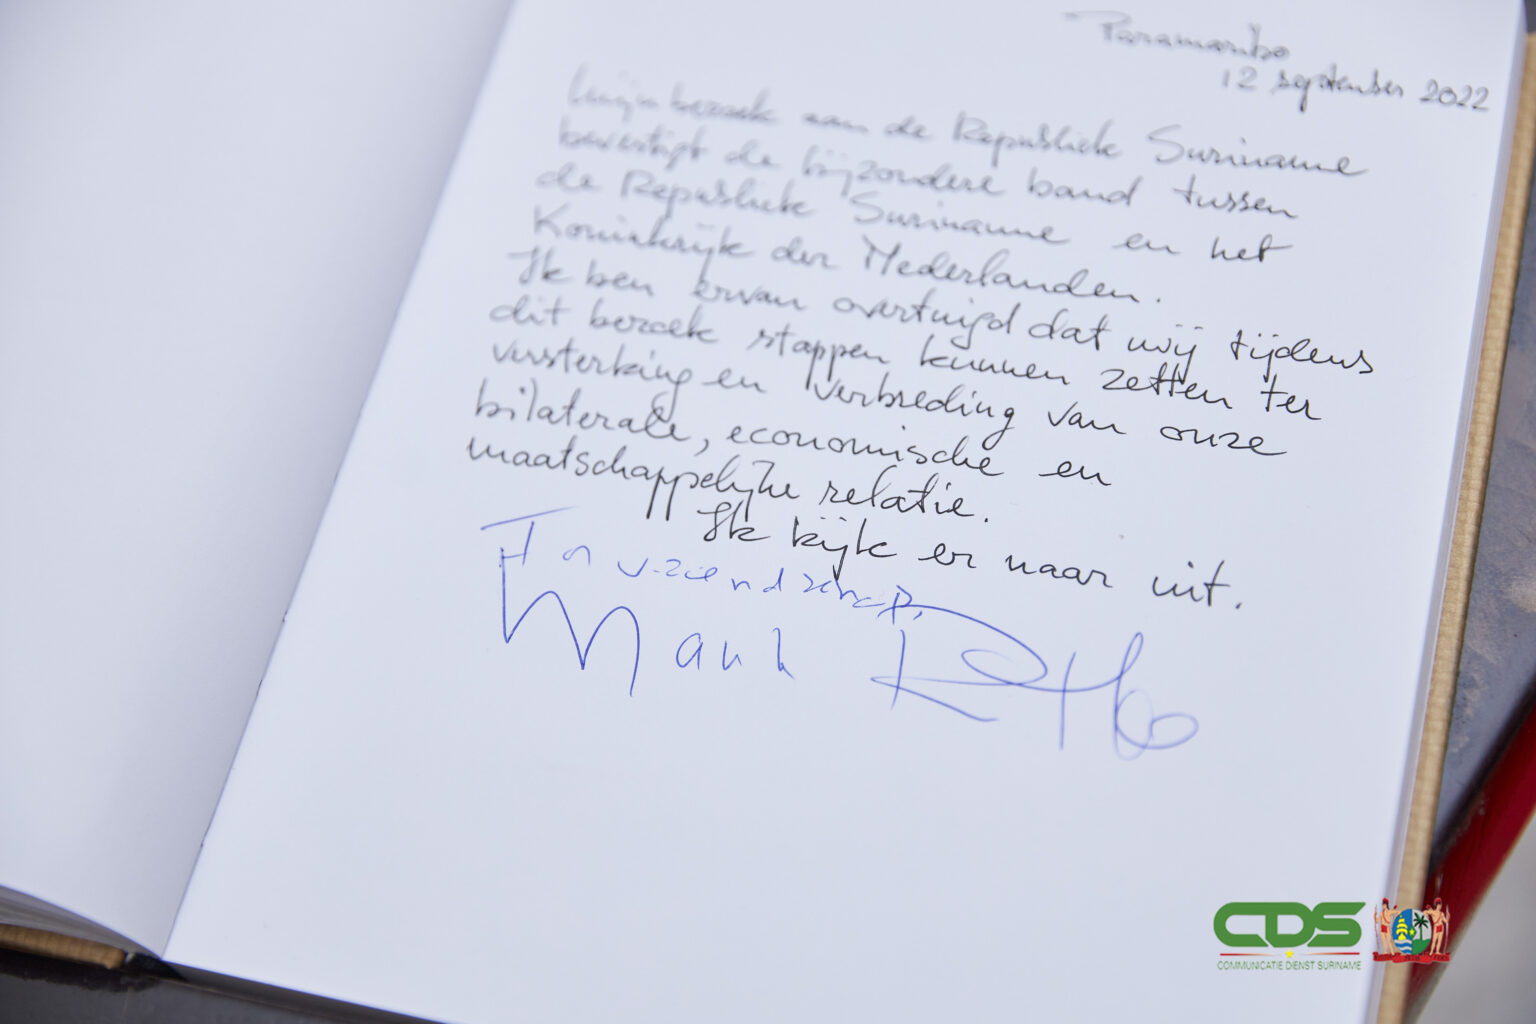 Paramaribo
12 september 2022
Mijn bezoek aan de Republiek Suriname
bevestigt de bijzondere band tussen
de Republiek Suriname en het
Koninkrijk der Nederlanden.
Ik ben ervan overtuigd dat wij tijdens
dit bezoek stappen kunnen zetten ter
versterking en verbreding van onze
bilaterale, economische en
maatschappelijke relatie.
Ik kijk er naar uit.
In vriendschap,
Mark Rutte
CDS
COMMUNICATIE DIENST SURINAME